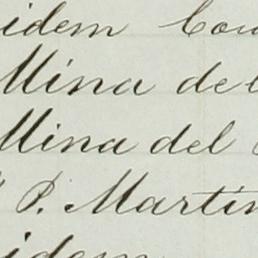 idem Cou
Mina del
Mina del
P. Martin
idem